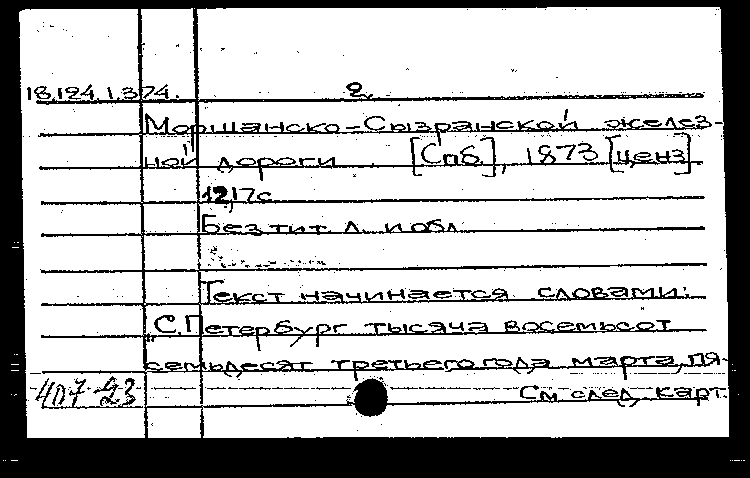 18.124.1.374. 2.
Моршанско-Сызранской желез-
ной дороги. [Спб], 1873 [ценз]
17с
Без тит. л. и обл.
Текст начинается словами:
„С.Петербург тысяча восемьсот
семьдесят третьего года марта, пя-
407-23 См. след. карт.